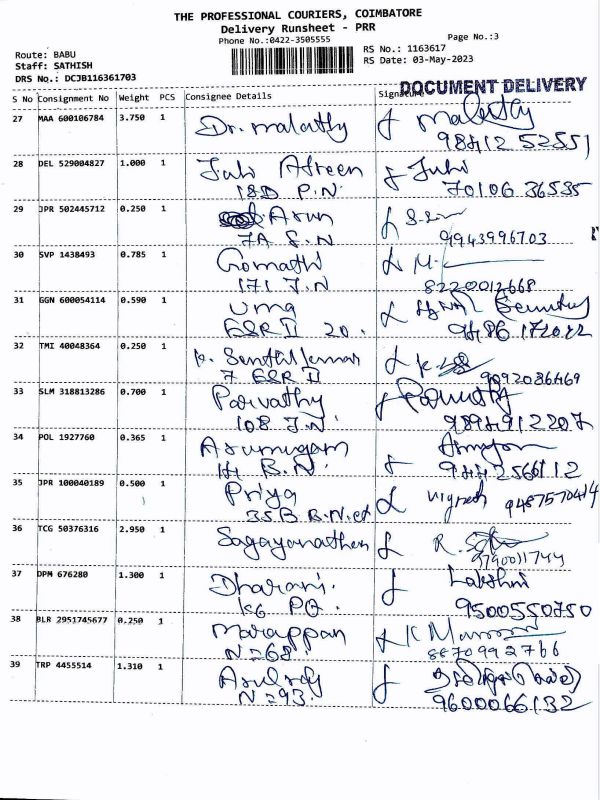 THE PROFESSIONAL COURIERS, COIMBATORE
Delivery Runsheet - PRR
Phone No.:0422-3505555
Page No.:3
Route: BABU
RS No.: 1163617
Staff: SATHISH
RS Date: 03-May-2023
DRS No.: DCJB116361703
DOCUMENT DELIVERY
S No Consignment No Weight PCS Consignee Details Signature
27 MAA 600106784 3.750 1 Dr. Malathy Malathy
98412 52551
28 DEL 529004827 1.000 1 Afreen
18D P.N. 70106 36535
29 JPR 502445712 0.250 1 Arun
7A S.N 9943996703
30 SVP 1438493 0.785 1 Gomathi M.
171 J.N 8220012668
31 GGN 600054114 0.590 1 Uma
E&R II 20.
32 TMI 40048364 0.250 1 K. Senthil Kumar
7 E&R II
33 SLM 318813286 0.700 1 Parvathy
108 J.N. 9894912207
34 POL 1927760 0.365 1 Arumugam
B.N. 9442566112
35 JPR 100040189 0.500 1 Priya Vignesh 9487570414
35B B.N.
36 TCG 50376316 2.950 1 R.
37 DPM 676280 1.300 1 Dharani. Lakshmi
K6 PQ. 9500550750
38 BLR 2951745677 0.250 1 Marappan K
N=68 8870992766
39 TRP 4455514 1.310 1
N=93. 9600066132